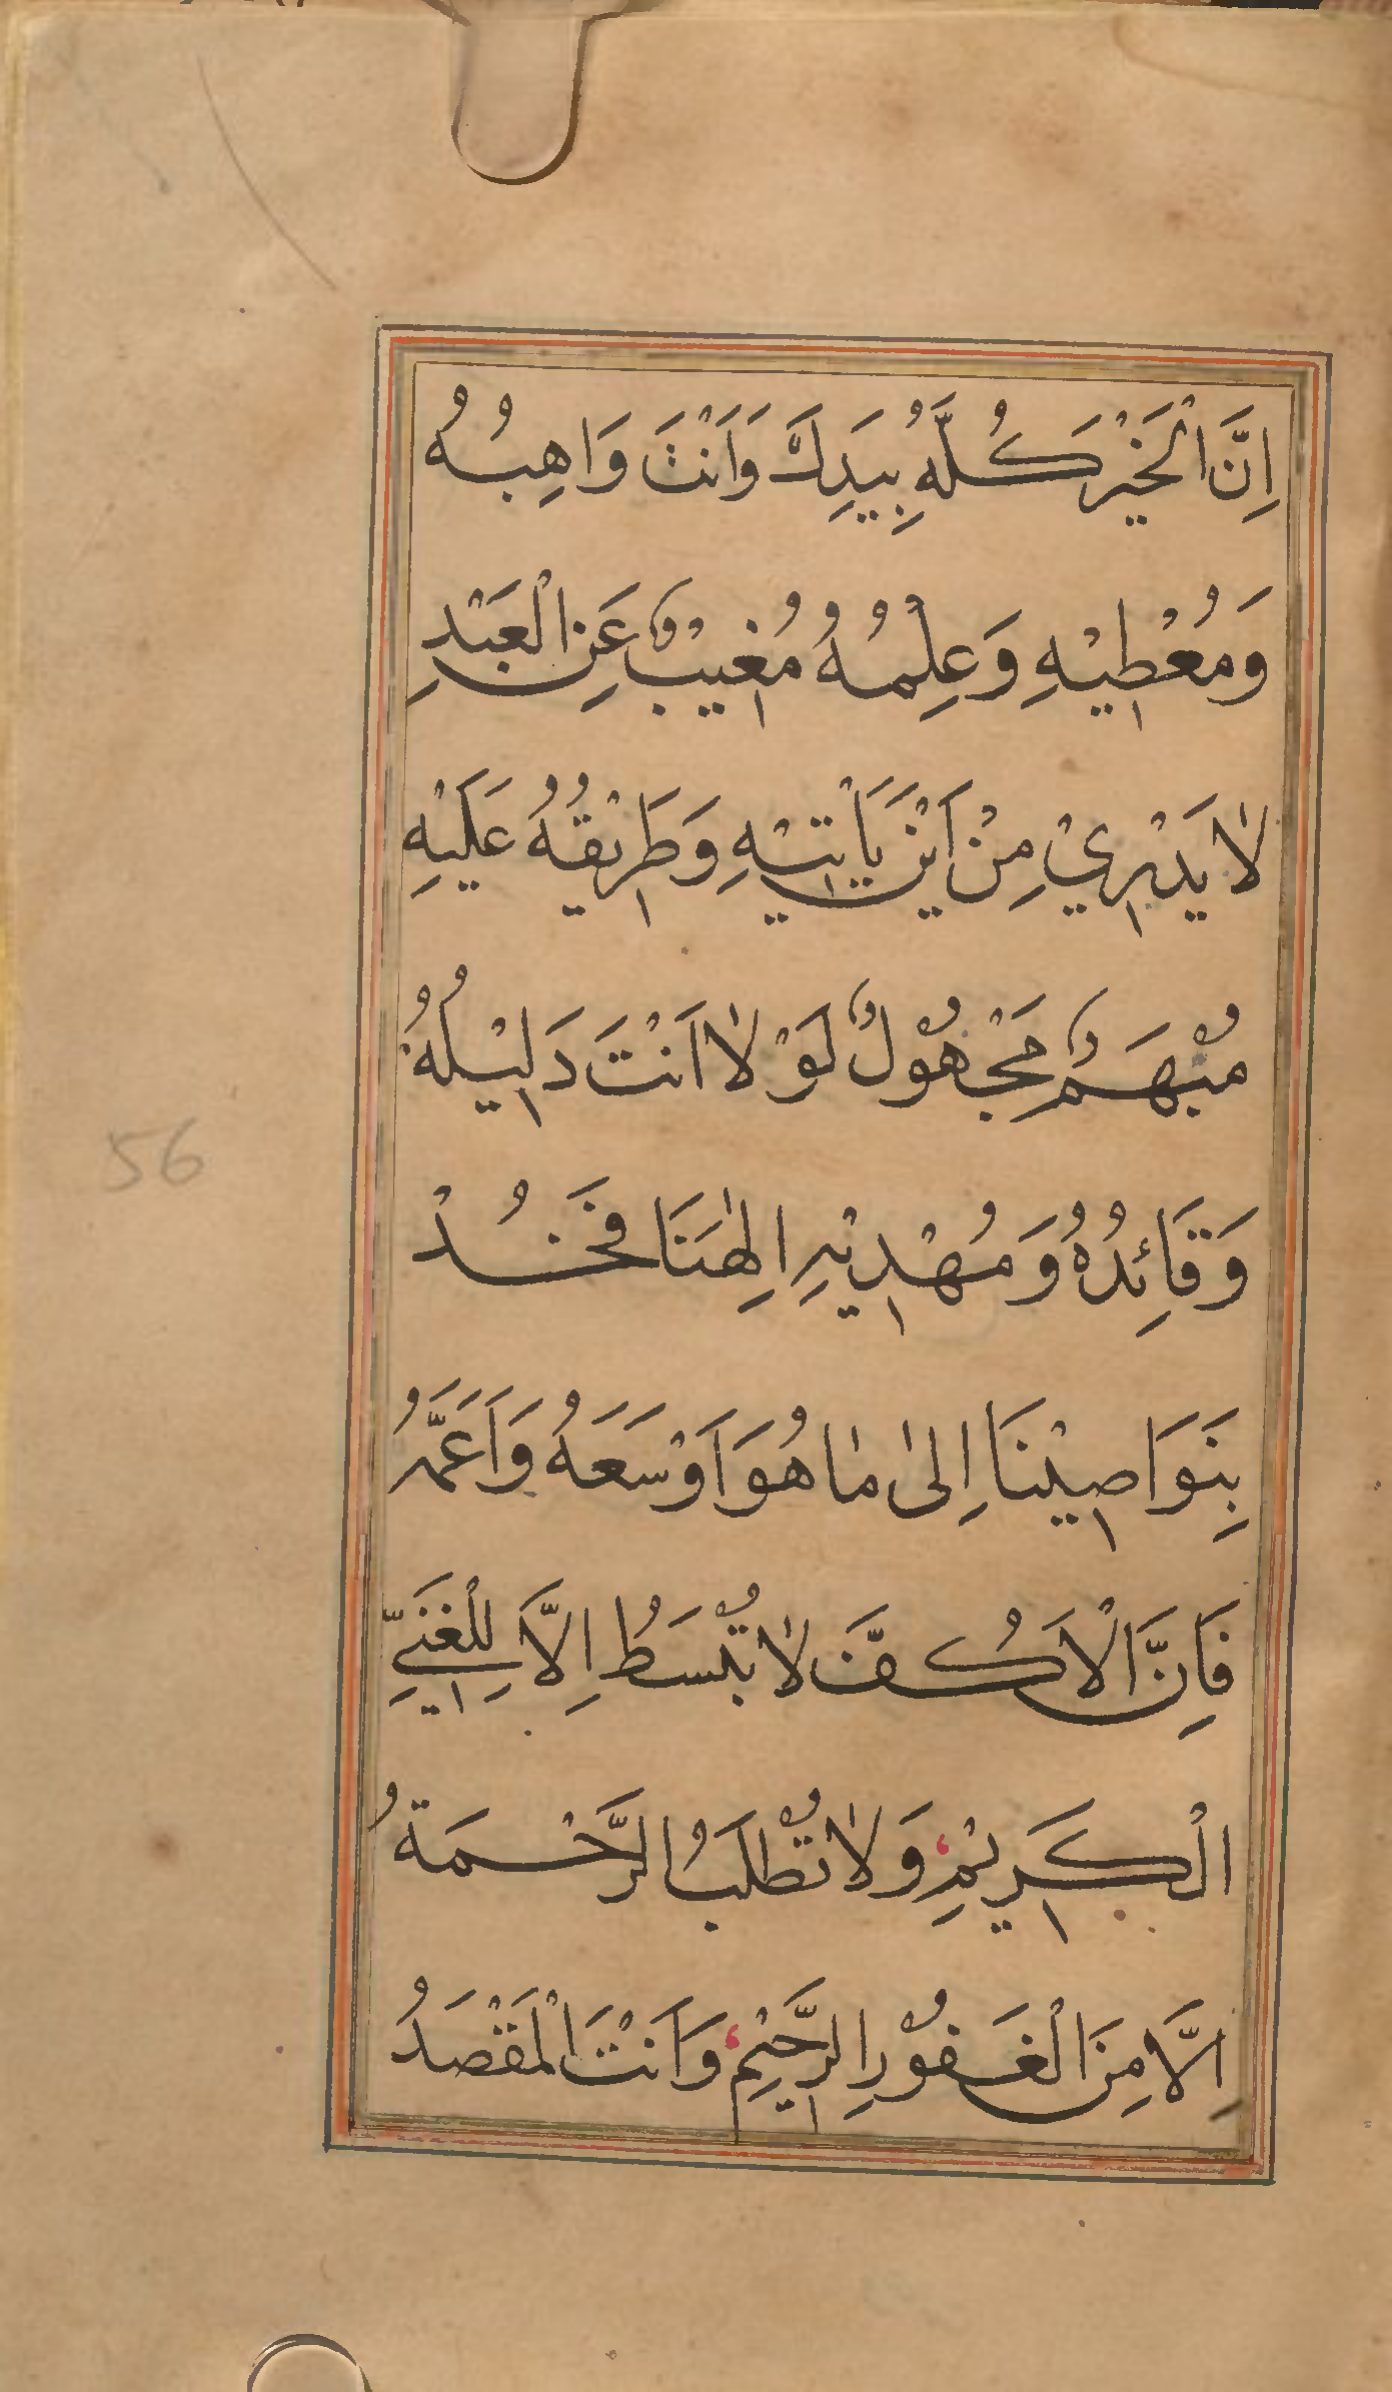 اِنَّ الْخَيْرَ كُلَّهُ بِيَدِكَ وَاَنْتَ وَاهِبُهُ
وَمُعْطِيْهِ وَعِلْمُهُ مُغِيْبٌ عَنِ الْعَبْدِ
لَا يَدْرِيْ مِنْ اَيْنَ يَأْتِيْهِ وَطَرِيْقُهُ عَلَيْهِ
مُبْهَمٌ مَجْهُوْلٌ لَوْلَا اَنْتَ دَلِيْلُهُ
وَقَائِدُهُ وَمُهْدِيْهِ اِلٰهَنَا فَخُذْ
بِنَوَاصِيْنَا اِلىٰ مَا هُوَ اَوْسَعَهُ وَاَعَمَّهُ
فَاِنَّ الْاَكُفَّ لَا تُبْسَطُ اِلَّا لِلْغَنِيِّ
الْكَرِيْمِ وَلَا تُطْلَبُ الرَّحْمَةُ
اِلَّا مِنَ الْغَفُوْرِ الرَّحِيْمِ وَاَنْتَ الْمَقْصَدُ
56